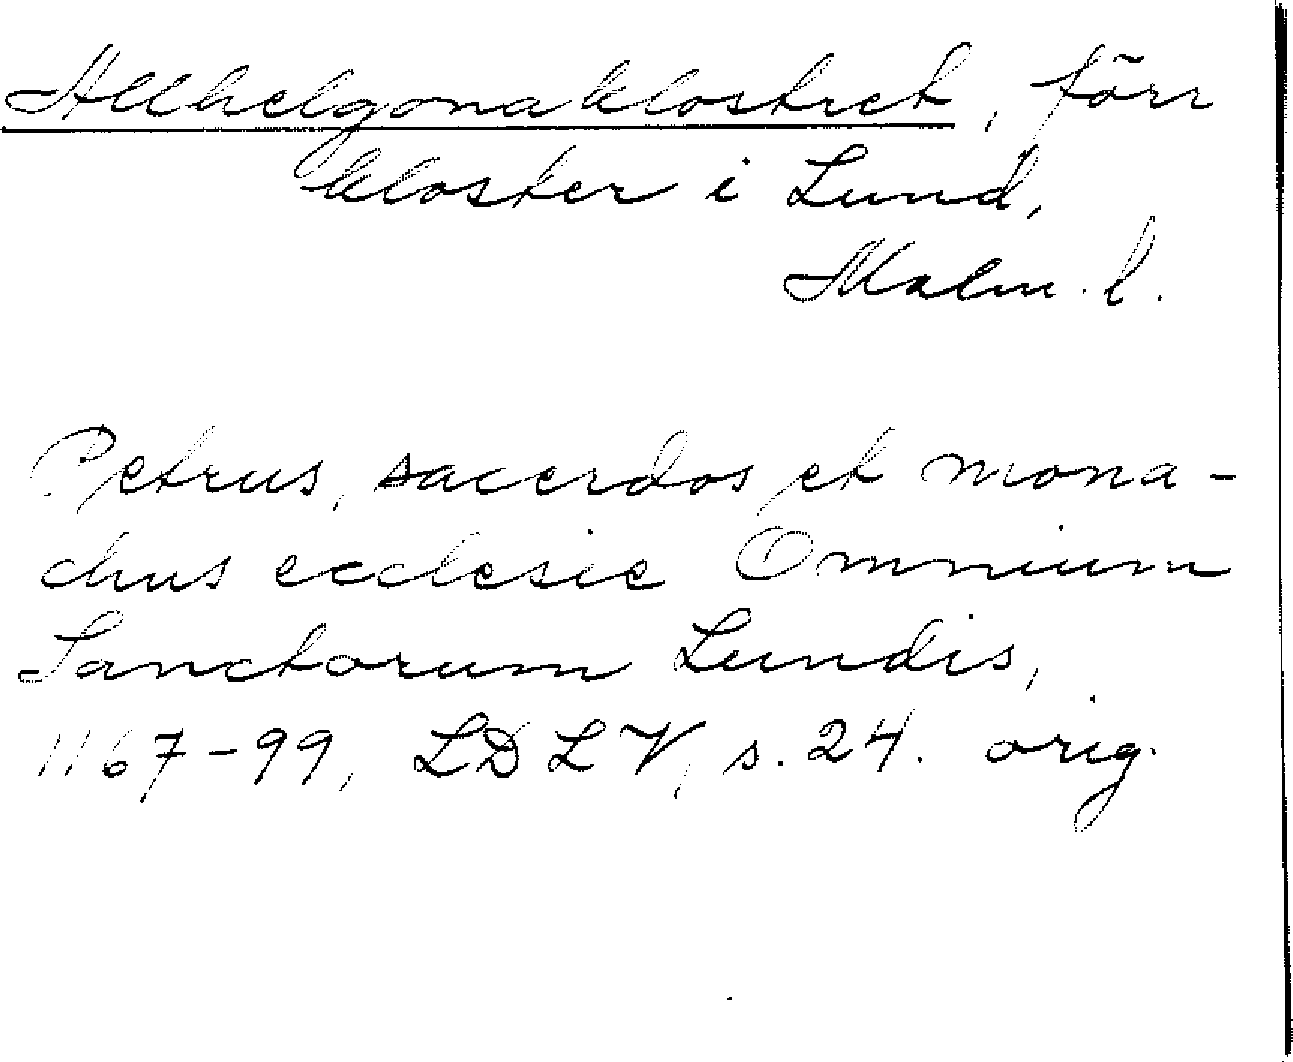 Allhelgonaklostret, förr
kloster i Lund,
Malm. l.
Petrus, sacerdos et mona-
chus ecclesie Omnium
Sanctorum Lundis,
1167-99, LDLV, s. 24. orig.